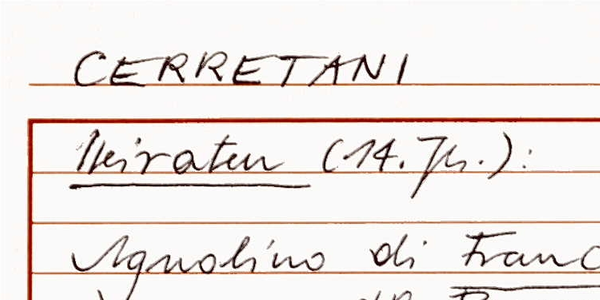 CERRETANI
Heiraten (14. Jh.):
Agnolino di Franc